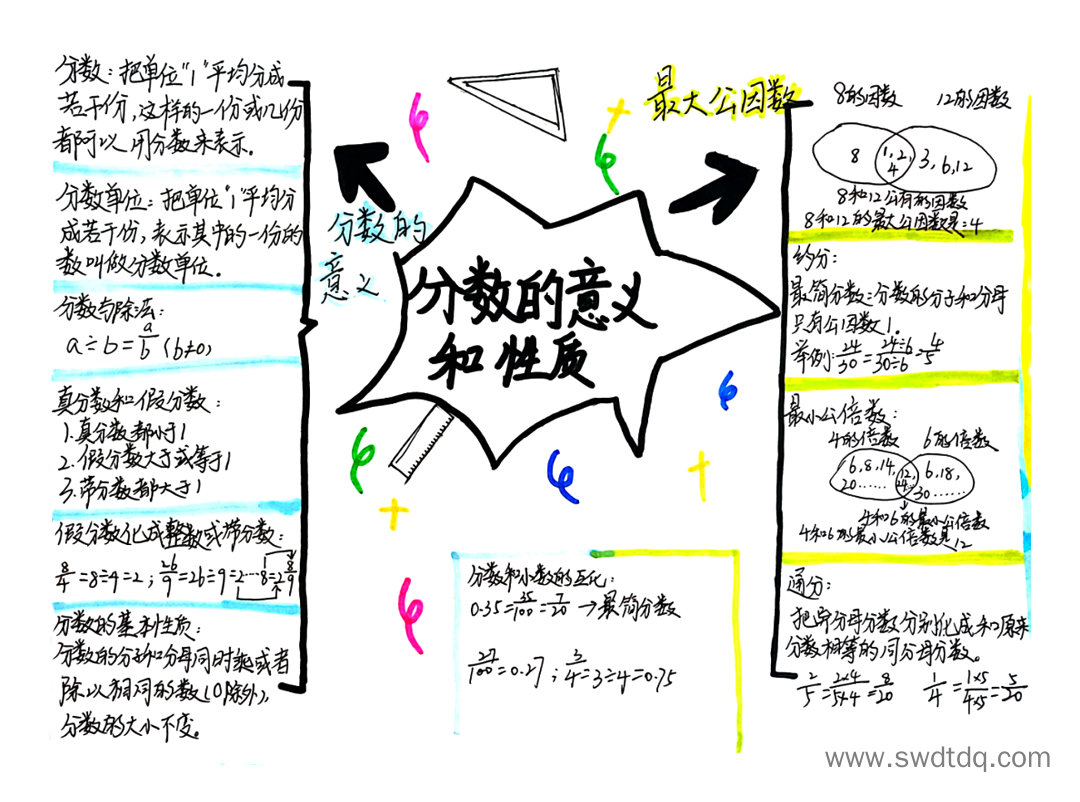 分数的意义
和性质
分数的
意义
分数：把单位"1"平均分成
若干份,这样的一份或几份
都可以用分数来表示。
分数单位：把单位"1"平均分
成若干份，表示其中的一份的
数叫做分数单位。
分数与除法：
a÷b=a/b (b≠0)
真分数和假分数：
1.真分数都小于1
2.假分数大于或等于1
3.带分数都大于1
假分数化成整数或带分数：
8/4=8÷4=2；26/9=26÷9=2……8=2 8/9
分数的基本性质：
分数的分子和分母同时乘或者
除以相同的数(0除外),
分数的大小不变。
最大公因数
8的因数 12的因数
8 1,2, 3,6,12
4
8和12公有的因数
8和12的最大公因数是:4
约分：
最简分数：分数的分子和分母
只有公因数1。
举例:24/30=24÷6/30÷6=4/5
最小公倍数：
4的倍数 6的倍数
12, 6,18,
20…… 24… 30……
4和6的最小公倍数
4和6的最小公倍数是12
通分：
把异分母分数分别化成和原来
分数相等的同分母分数。
2/5=2×4/5×4=8/20 1/4=1×5/4×5=5/20
分数和小数的互化：
0.35=35/100=7/20→最简分数
27/100=0.27；3/4=3÷4=0.75
www.swdtdq.com